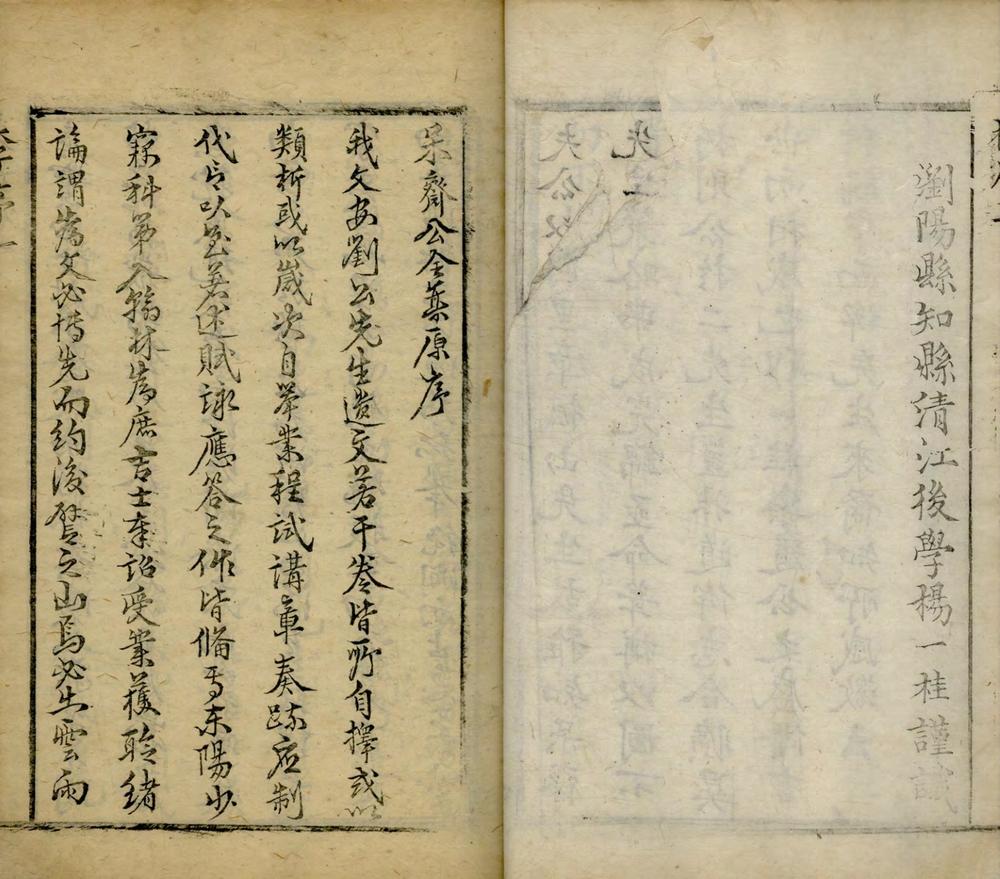 瀏陽縣知縣清江後學楊一桂謹識
呆齋公全集原序
我文安劉公先生遺文若干卷皆所自擇或以
類析或以歲次自舉業程試講章奏疏應制
代言以至著述賦詠應答之作皆備焉東陽少
寀科第入翰林爲庶吉士奉詔受業獲聆緒
論謂爲文必博先而約後譬之山焉必出雲雨